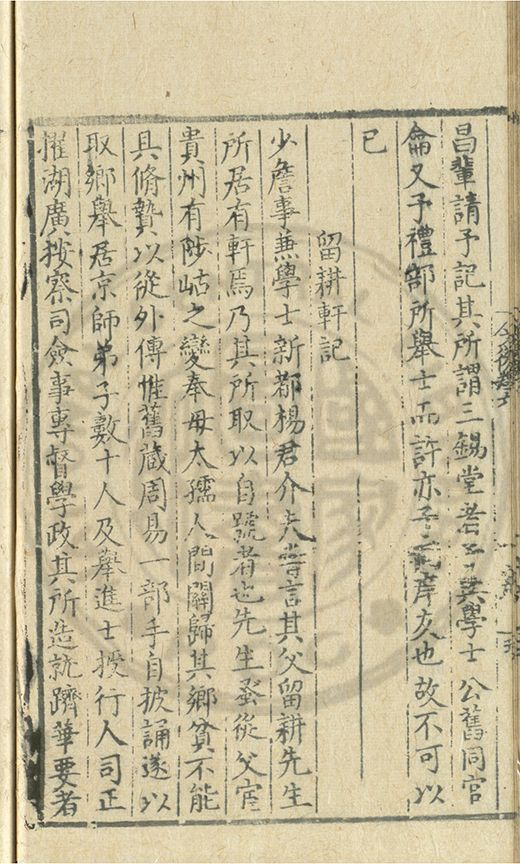 昌輩請予記其所謂三錫堂者予與學士公舊同官
侖又予禮部所舉士而許亦予同年友也故不可以
已
留耕軒記
少詹事兼學士新都楊君介夫嘗言其父留耕先生
所居有軒焉乃其所取以自號者也先生蚤從父宦
貴州有陟岵之變奉母太孺人間關歸其鄉貧不能
具脩贄以從外傅惟舊藏周易一部手自披誦遂以
取鄉舉居京師弟子數十人及舉進士授行人司正
擢湖廣按察司僉事專督學政其所造就躋華要者